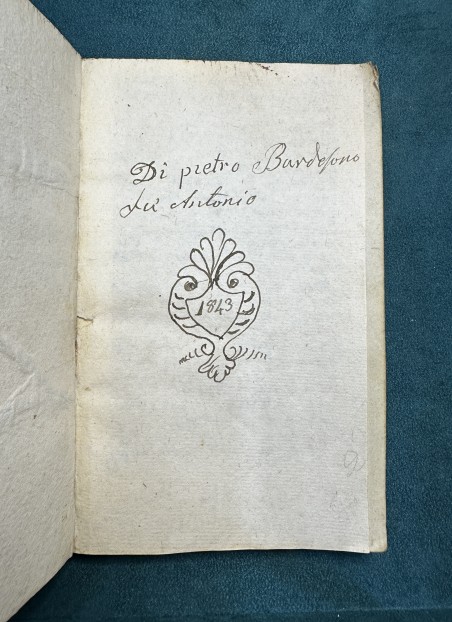 Di pietro Bardesono
fù Antonio
1843